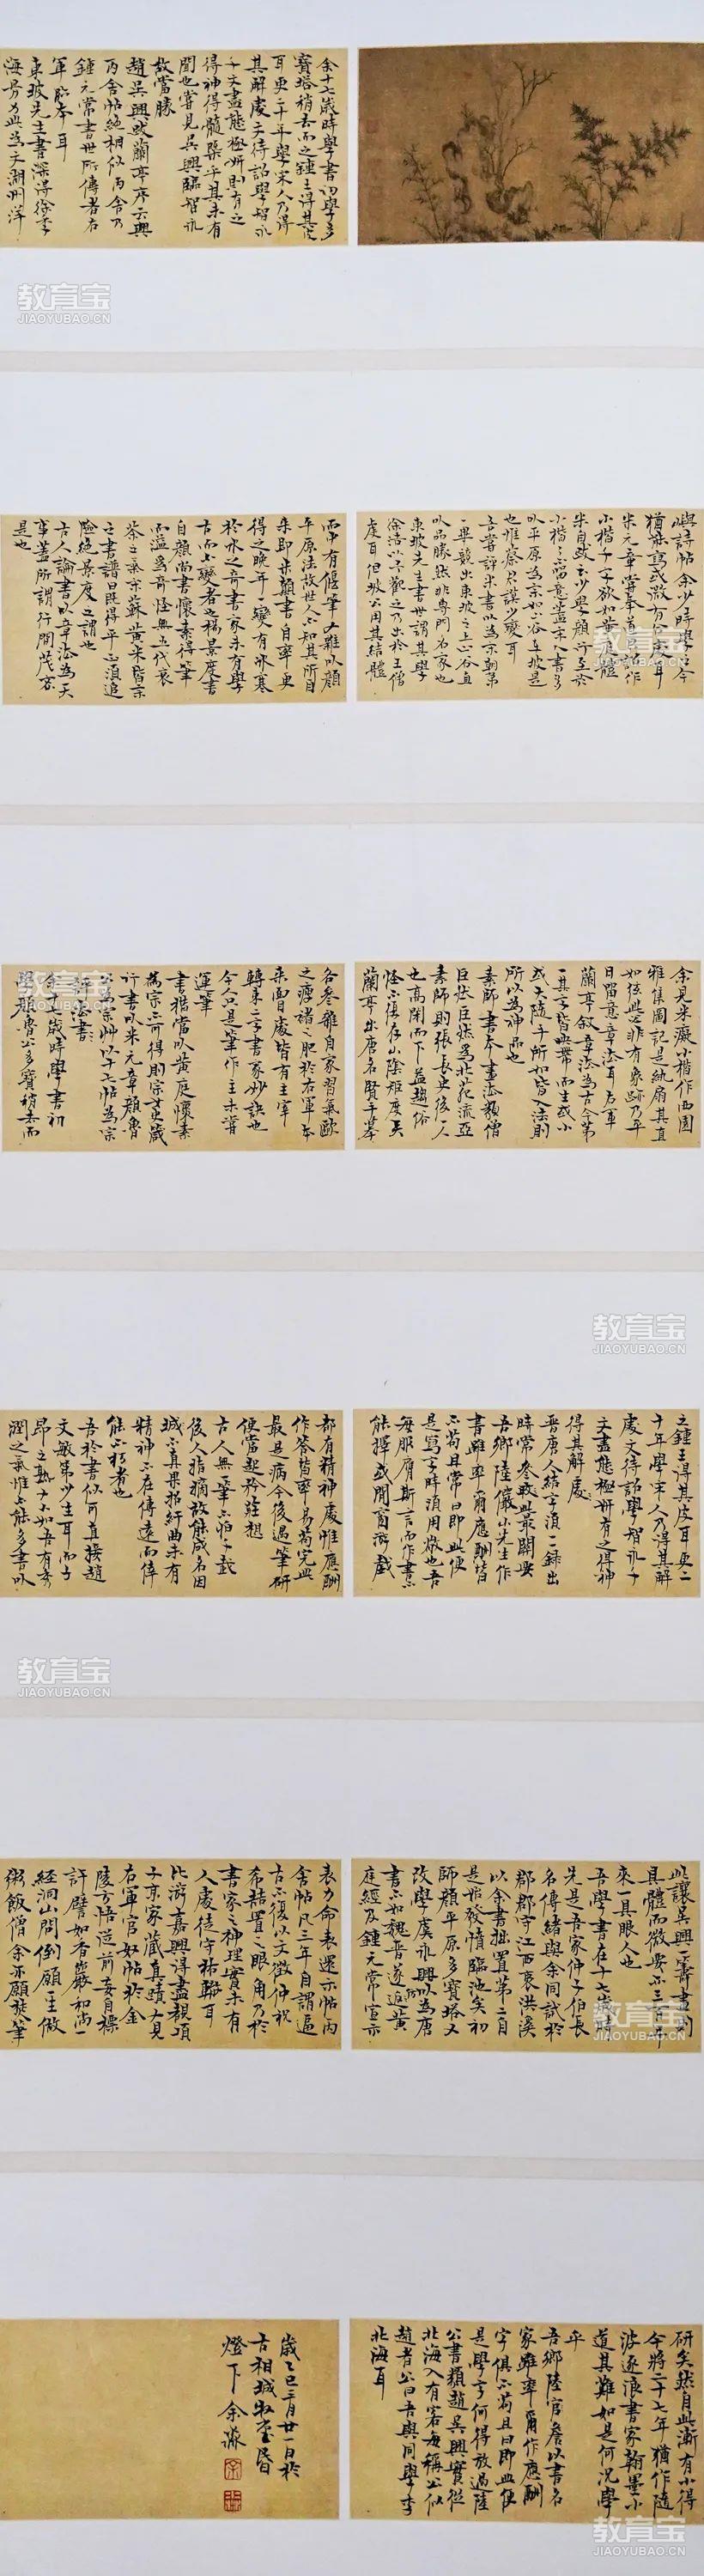 余十七歲時學書初學多
寶塔稍去而之鍾王得其皮
耳更二十年學宋人乃得
其解處文待詔學智永
千文盡態極妍則有之
得神得髓槩乎其未有
聞也嘗見吳興臨智永
故當勝
趙吳興跋蘭亭序云與
丙舍帖絕相似丙舍乃
鍾元常書世所傳者右
軍臨本耳
東坡先生書深得徐季
海骨力此為文湖州洋
嶼詩帖余少時學之今
猶能寫或微有合處耳
米元章嘗奉道君詔作
小楷千字欲如黃庭體
米自跋云少學顏行至於
小楷了不留意蓋宋人書多
以平原為宗如山谷東坡是
也惟蔡君謨少變耳
吾嘗評米書以為宋朝第
一畢竟出東坡之上山谷直
以品勝然非專門名家也
東坡先生書世謂其學
徐浩以予觀之乃出於王僧
虔耳但坡公用其結體
而中有偃筆又雜以顏
平原法故世人不知其所自
來即米顛書自率更
得之晚年一變有冰寒
於水之奇書家未有學
古而不變者也楊景度書
自顏尚書懷素得筆
而溢為奇怪無五代衰
苶之氣宋蘇黃米皆宗
之書譜曰既得平正須追
險絕景度之謂也
古人論書以章法為一大
事蓋所謂行間茂密
是也
余見米癡小楷作西園
雅集圖記是紈扇其直
如弦此必非有象跡乃平
日留意章法耳右軍
蘭亭敘章法為古今第
一其字皆映帶而生或小
或大隨手所如皆入法則
所以為神品也
素師書本畫法類僧
巨然巨然為北苑流亞
素師則張長史後一人
也高閑而下益趨俗
怪不復存山陰矩度矣
蘭亭出唐名賢手摹
各參雜自家習氣歐
之瘦褚之肥於右軍本
來面處皆有主宰
轉束二字書家妙訣也
今只是筆作主未嘗
運筆
書楷當以黃庭懷素
為宗不可得則宗女史箴
行書以米元章顏魯
公為宗草以十七帖為宗
評法書
余十七歲時學書初
學顏魯公多寶稍去而
之鍾王得其皮耳更二
十年學宋人乃得其解
處文待詔學智永千
文盡態極妍有之得神
得其解處
晉唐人結字須一一錄出
時常參取此最關要
吾鄉陸儼山先生作
書雖率爾應酬皆
不苟且常曰即此便
是寫字時須用敬也吾
每服膺斯言而作書不
能擇或閒窗游戲
都有精神處惟應酬
作答皆率易苟完此
最是病今後遇筆研
便當起矜莊想
古人無一筆不怕千載
後人指摘故能成名因
城不真果招紆曲未有
精神不在傳遠而倖
能不朽者也
吾於書似可直接趙
文敏第少生耳而子
昂之熟又不如吾有秀
潤之氣惟不能多書以
此讓吳興一籌畫則
具體而微要亦三百年
來一具眼人也
吾學書在十七歲時
先是吾家仲子伯長
名傳緒與余同試於
郡郡守江西袁洪溪
以余書拙置第二自
是始發憤臨池矣初
師顏平原多寶塔又
改學虞永興以為唐
書不如魏晉遂返黃
庭經及鍾元常宣示
表力命表還示帖丙
舍帖凡三年自謂逼
古不復以文徵仲祝
希喆置之眼角乃於
書家之神理實未有
入處徒守格轍耳
比游嘉興得盡覩項
子京家藏真蹟又見
右軍官奴帖於金
陵方悟從前妄自標
許譬如香巖和尚一
經洞山問倒願一生做
粥飯僧余亦願焚筆
研矣然自此漸有小得
今將二十七年猶作隨
波逐浪書家翰墨小
道其難如是何況學
乎
吾鄉陸宮詹以書名
家雖率爾作應酬
字俱不苟且曰即此便
是學字何得放過陸
公書類趙吳興實從
北海入有客每稱公似
趙者公曰吾與同學李
北海耳
歲乙巳三月廿一日於
古相城牧堂昏
燈下余
教育宝
JIAOYUBAO.CN
教育宝
JIAOYUBAO.CN
教育宝
JIAOYUBAO.CN
教育宝
JIAOYUBAO.CN
教育宝
JIAOYUBAO.CN
教育宝
JIAOYUBAO.CN